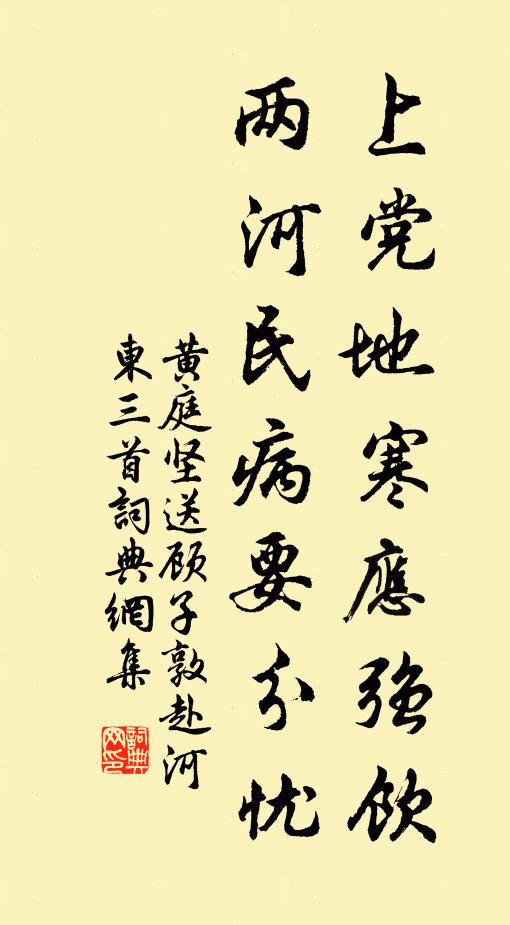 上党地寒應强飲
两河民病要分忧
黄庭坚送顾子敦赴河
東三首詞典網集
詞典
网印